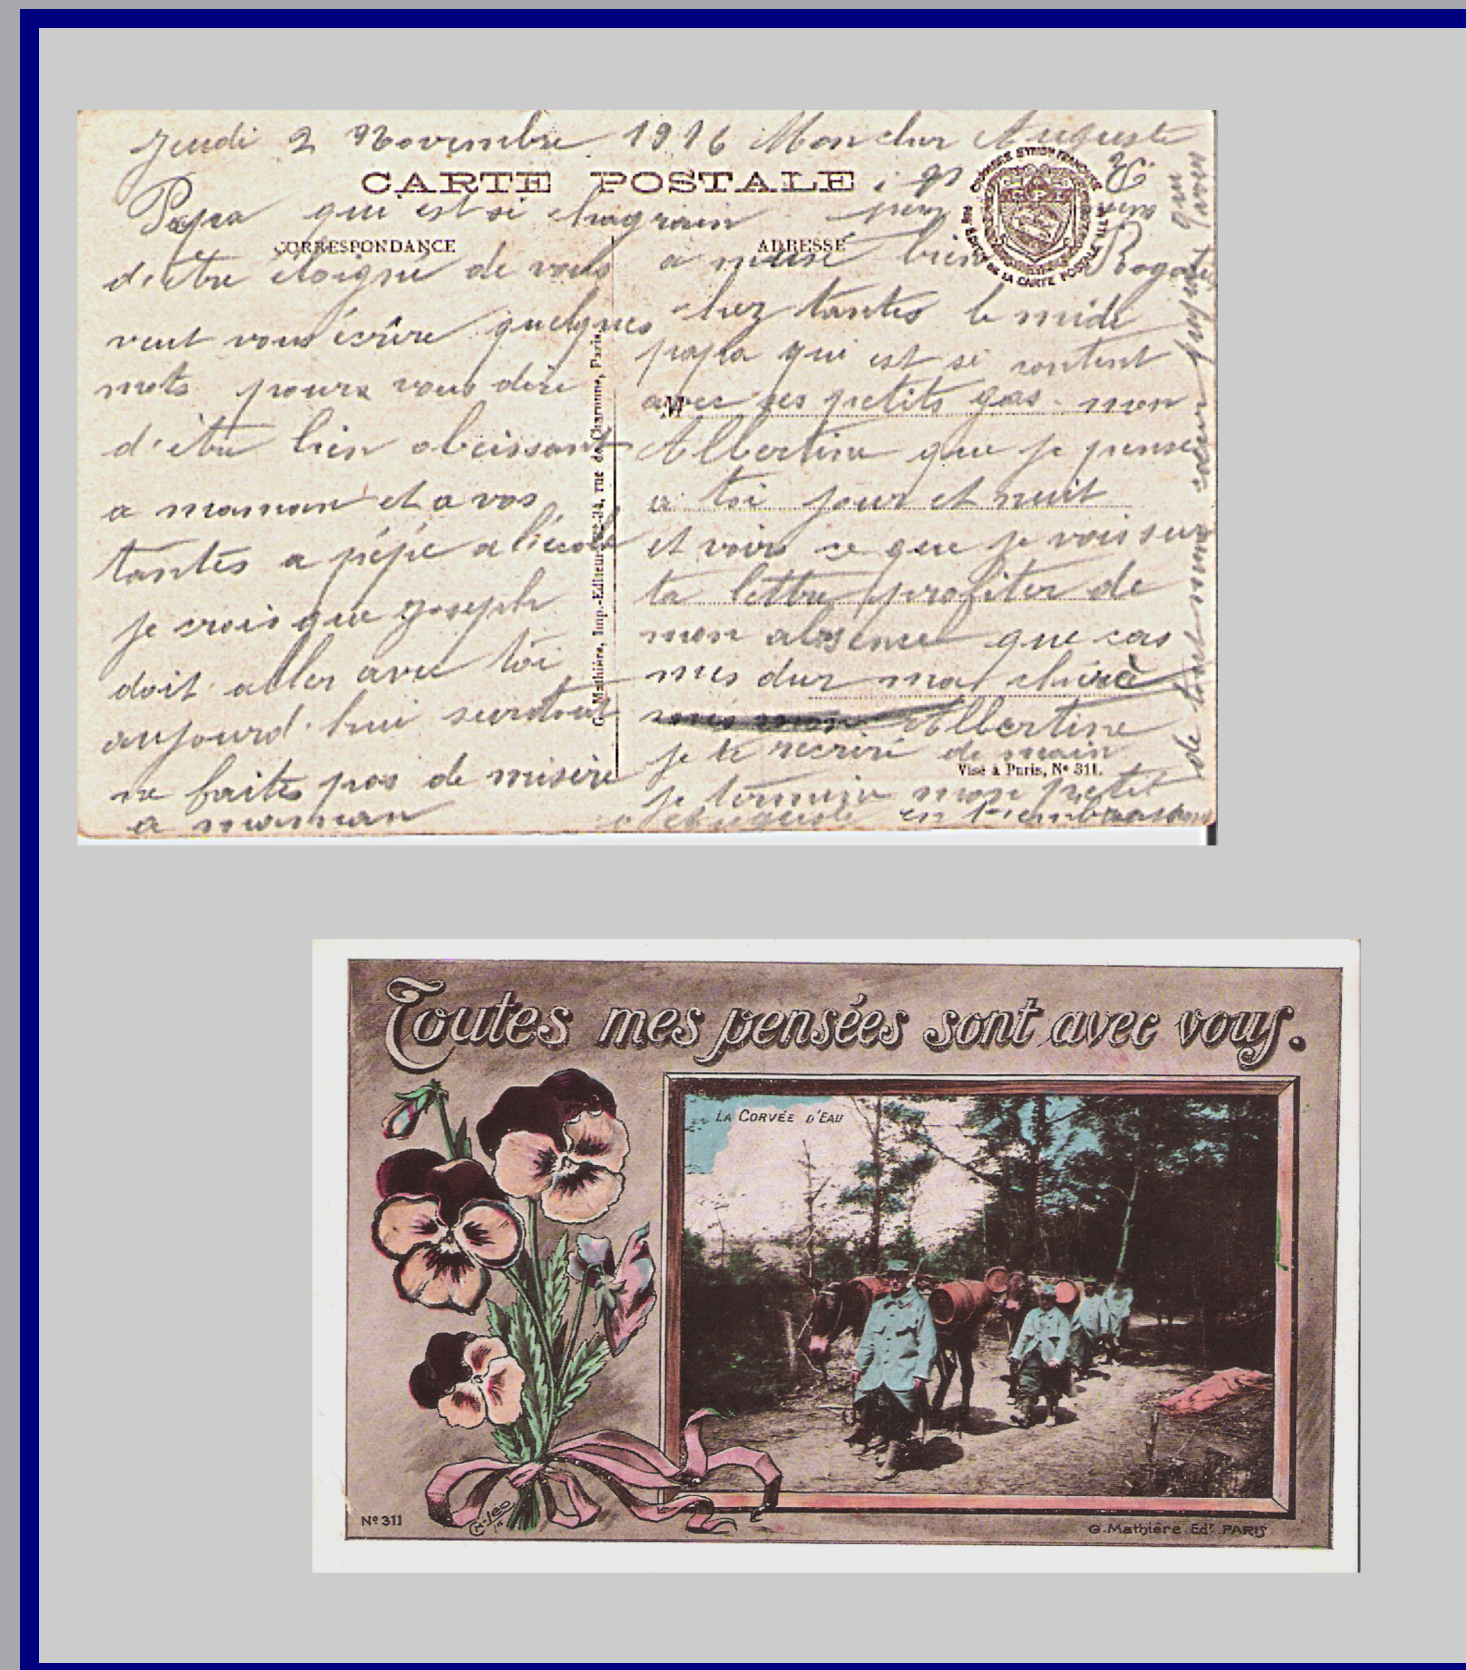 Jeudi 2 Novembre 1916 Mon cher Auguste
CARTE POSTALE
Papa qui est si chagrain
CORRESPONDANCE
d'etre eloigné de vous
veut vous écrire quelques
mots pour vous dire
d'être bien obeissant
a maman et a vos
tantes a pépé a l'école
je crois que Joseph
doit aller avec toi
aujourd'hui surtout
ne faites pas de misère
a maman
G. Mathière, Imp.-Editeur, 34, rue de Charonne, Paris.
ADRESSE
bien
chez tantes le midi
papa qui est si content
avec ses petits gas. mon
M
Albertine que je pense
a toi jour et nuit
et voir ce que je vois sur
ta lettre profiter de
mon absence que cas
mes dur ma chère
Albertine
je te recriré demain
Visé à Paris, Nº 311.
je termine mon petit
Auguste en t'embrassant
de tout mon cœur
Toutes mes pensées sont avec vous.
LA CORVÉE D'EAU
Nº 311
G. Mathière Edr. PARIS